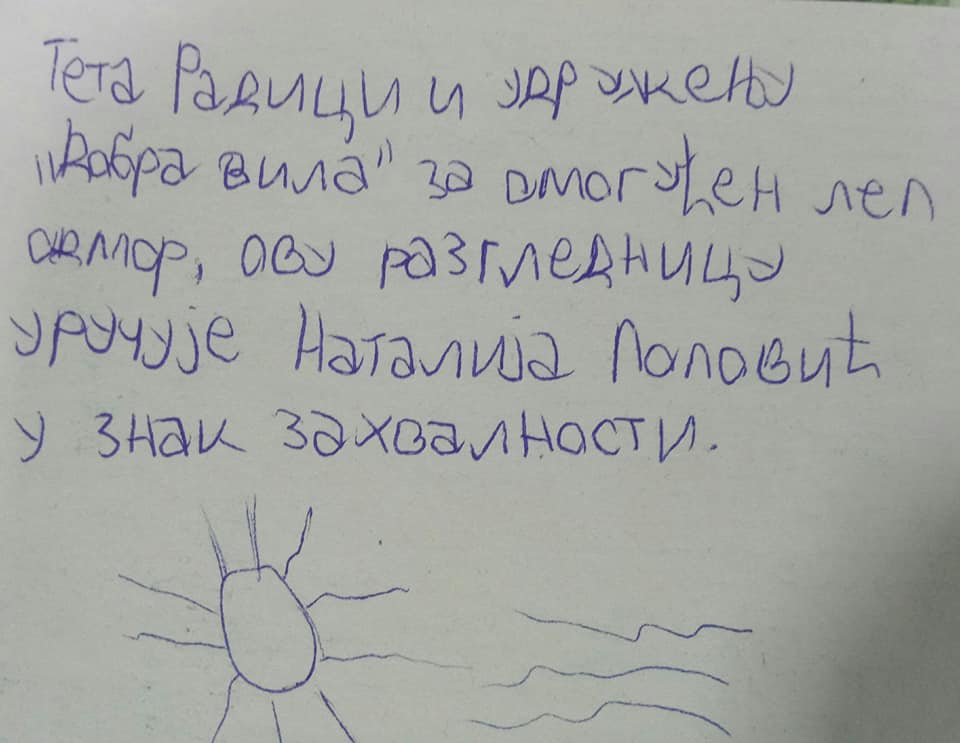 Тета Радици и удружењу
"Добра вила" за омогућен леп
одмор, ову разгледницу
уручује Наталија Поповић
у знак захвалности.